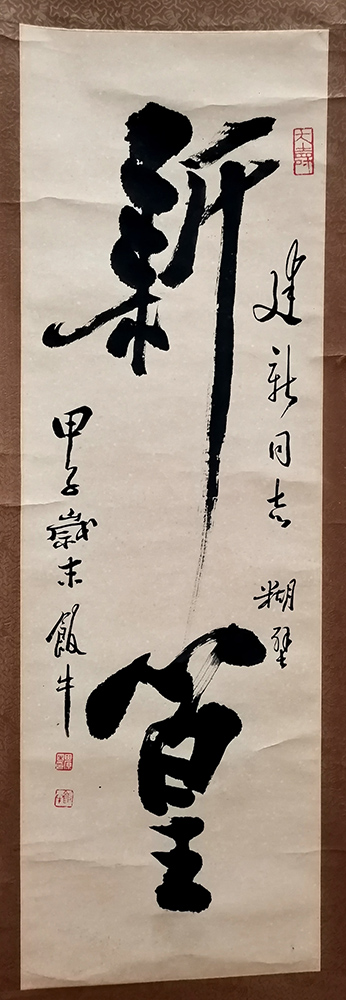 建新同志 糊壁
新篁
甲子歲末飯牛